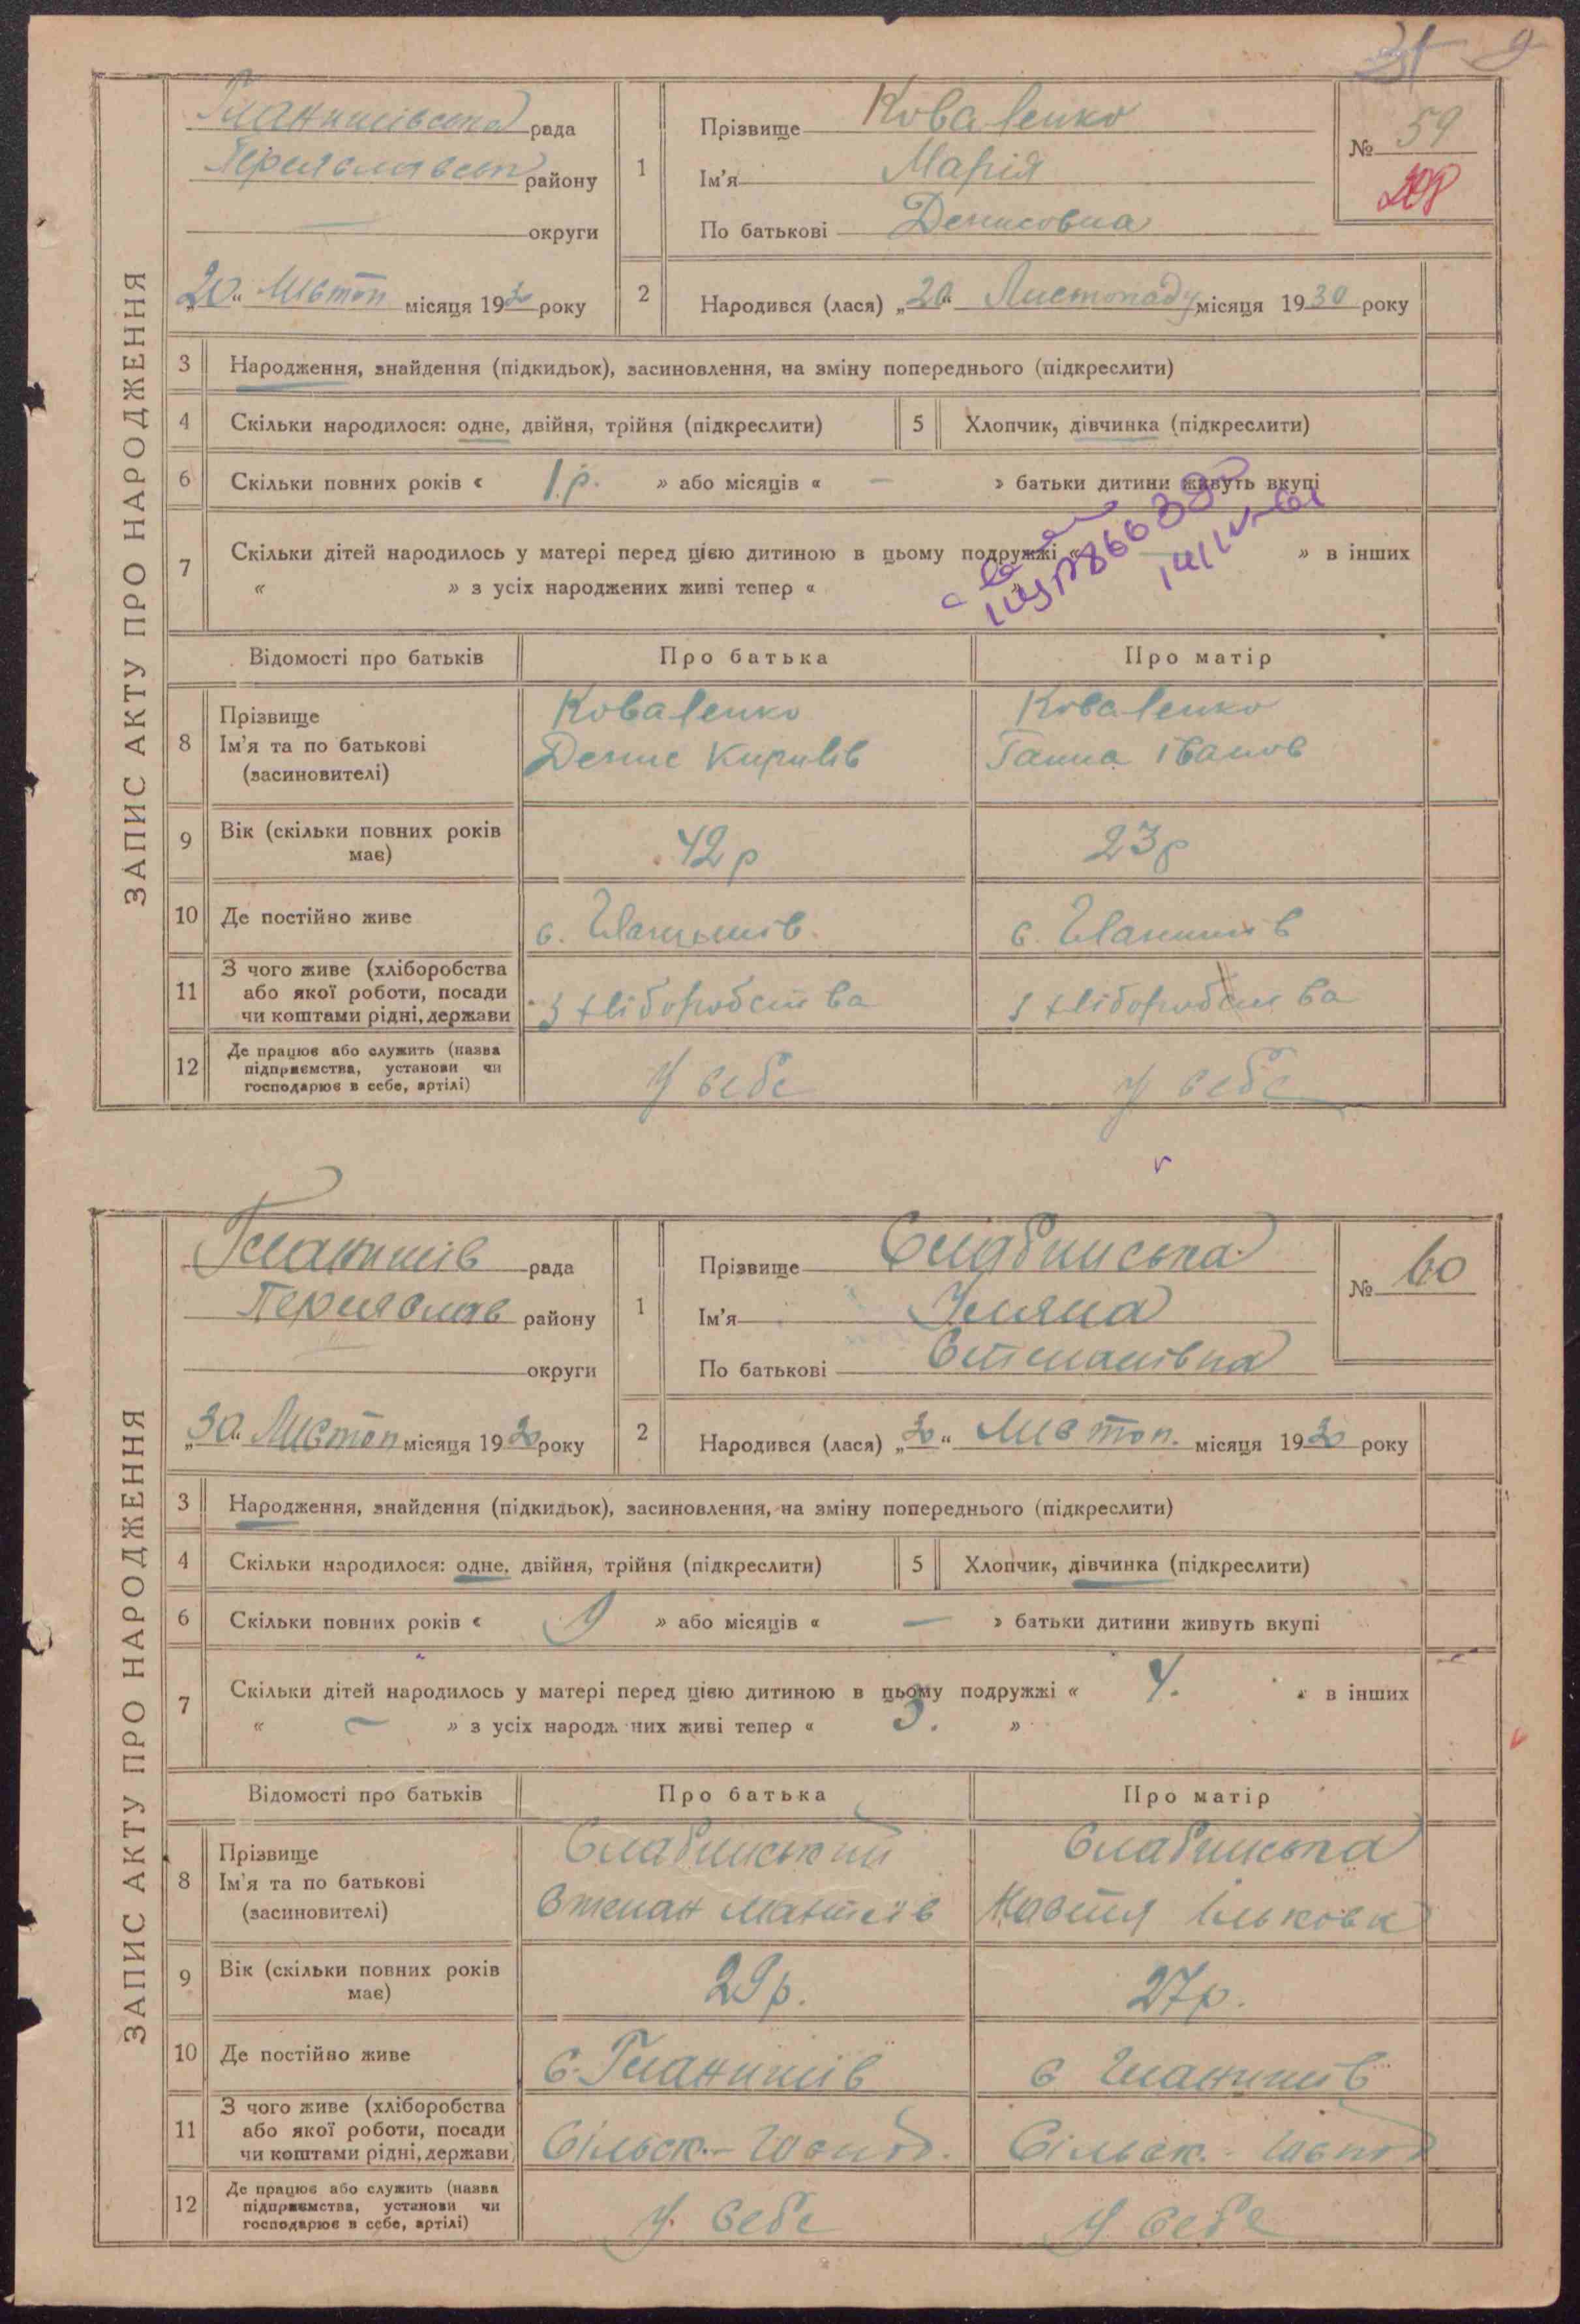 9
ЗАПИС АКТУ ПРО НАРОДЖЕННЯ
Гланишівська рада
Переяславськ району
округи
„20“ Листоп місяця 1930 року
1
Прізвище Коваленко
Ім'я Марія
По батькові Денисовна
№ 59
208
2
Народився (лася) „20“ Листопаду місяця 1930 року
3 Народження, знайдення (підкидьок), засиновлення, на зміну попереднього (підкреслити)
4 Скільки народилося: одне, двійня, трійня (підкреслити)
5 Хлопчик, дівчинка (підкреслити)
6 Скільки повних років « 1 р. » або місяців « — » батьки дитини живуть вкупі
7 Скільки дітей народилось у матері перед цією дитиною в цьому подружжі « » в інших
« » з усіх народжених живі тепер « »
Відомості про батьків Про батька Про матір
8 Прізвище
Ім'я та по батькові
(засиновителі)
Коваленко
Денис Кирилів
Коваленко
Ганна Іванов
9 Вік (скільки повних років
має)
42 р
23 р
10 Де постійно живе
с. Гланишів
с. Гланишів
11 З чого живе (хліборобства
або якої роботи, посади
чи коштами рідні, держави
З хліборобства
З хліборобства
12 Де працює або служить (назва
підприємства, установи чи
господарює в себе, артілі)
У себе
у себе
ЗАПИС АКТУ ПРО НАРОДЖЕННЯ
Гланишів рада
Переяслав району
округи
„30“ Листоп місяця 1930 року
1
Прізвище Слабинська
Ім'я Уляна
По батькові Степанівна
№ 60
2
Народився (лася) „30“ Листоп. місяця 1930 року
3 Народження, знайдення (підкидьок), засиновлення, на зміну попереднього (підкреслити)
4 Скільки народилося: одне, двійня, трійня (підкреслити)
5 Хлопчик, дівчинка (підкреслити)
6 Скільки повних років « 9 » або місяців « — » батьки дитини живуть вкупі
7 Скільки дітей народилось у матері перед цією дитиною в цьому подружжі « 4. » в інших
« — » з усіх народж них живі тепер « 3. »
Відомості про батьків Про батька Про матір
8 Прізвище
Ім'я та по батькові
(засиновителі)
Слабинський
Степан
Слабинська
Настя Ільковн
9 Вік (скільки повних років
має)
29 р.
27 р.
10 Де постійно живе
с. Гланишів
с Гланишів
11 З чого живе (хліборобства
або якої роботи, посади
чи коштами рідні, держави
Сільск.- Господ.
Сільск.- Господ
12 Де працює або служить (назва
підприємства, установи чи
господарює в себе, артілі)
У. Себе
У Себе